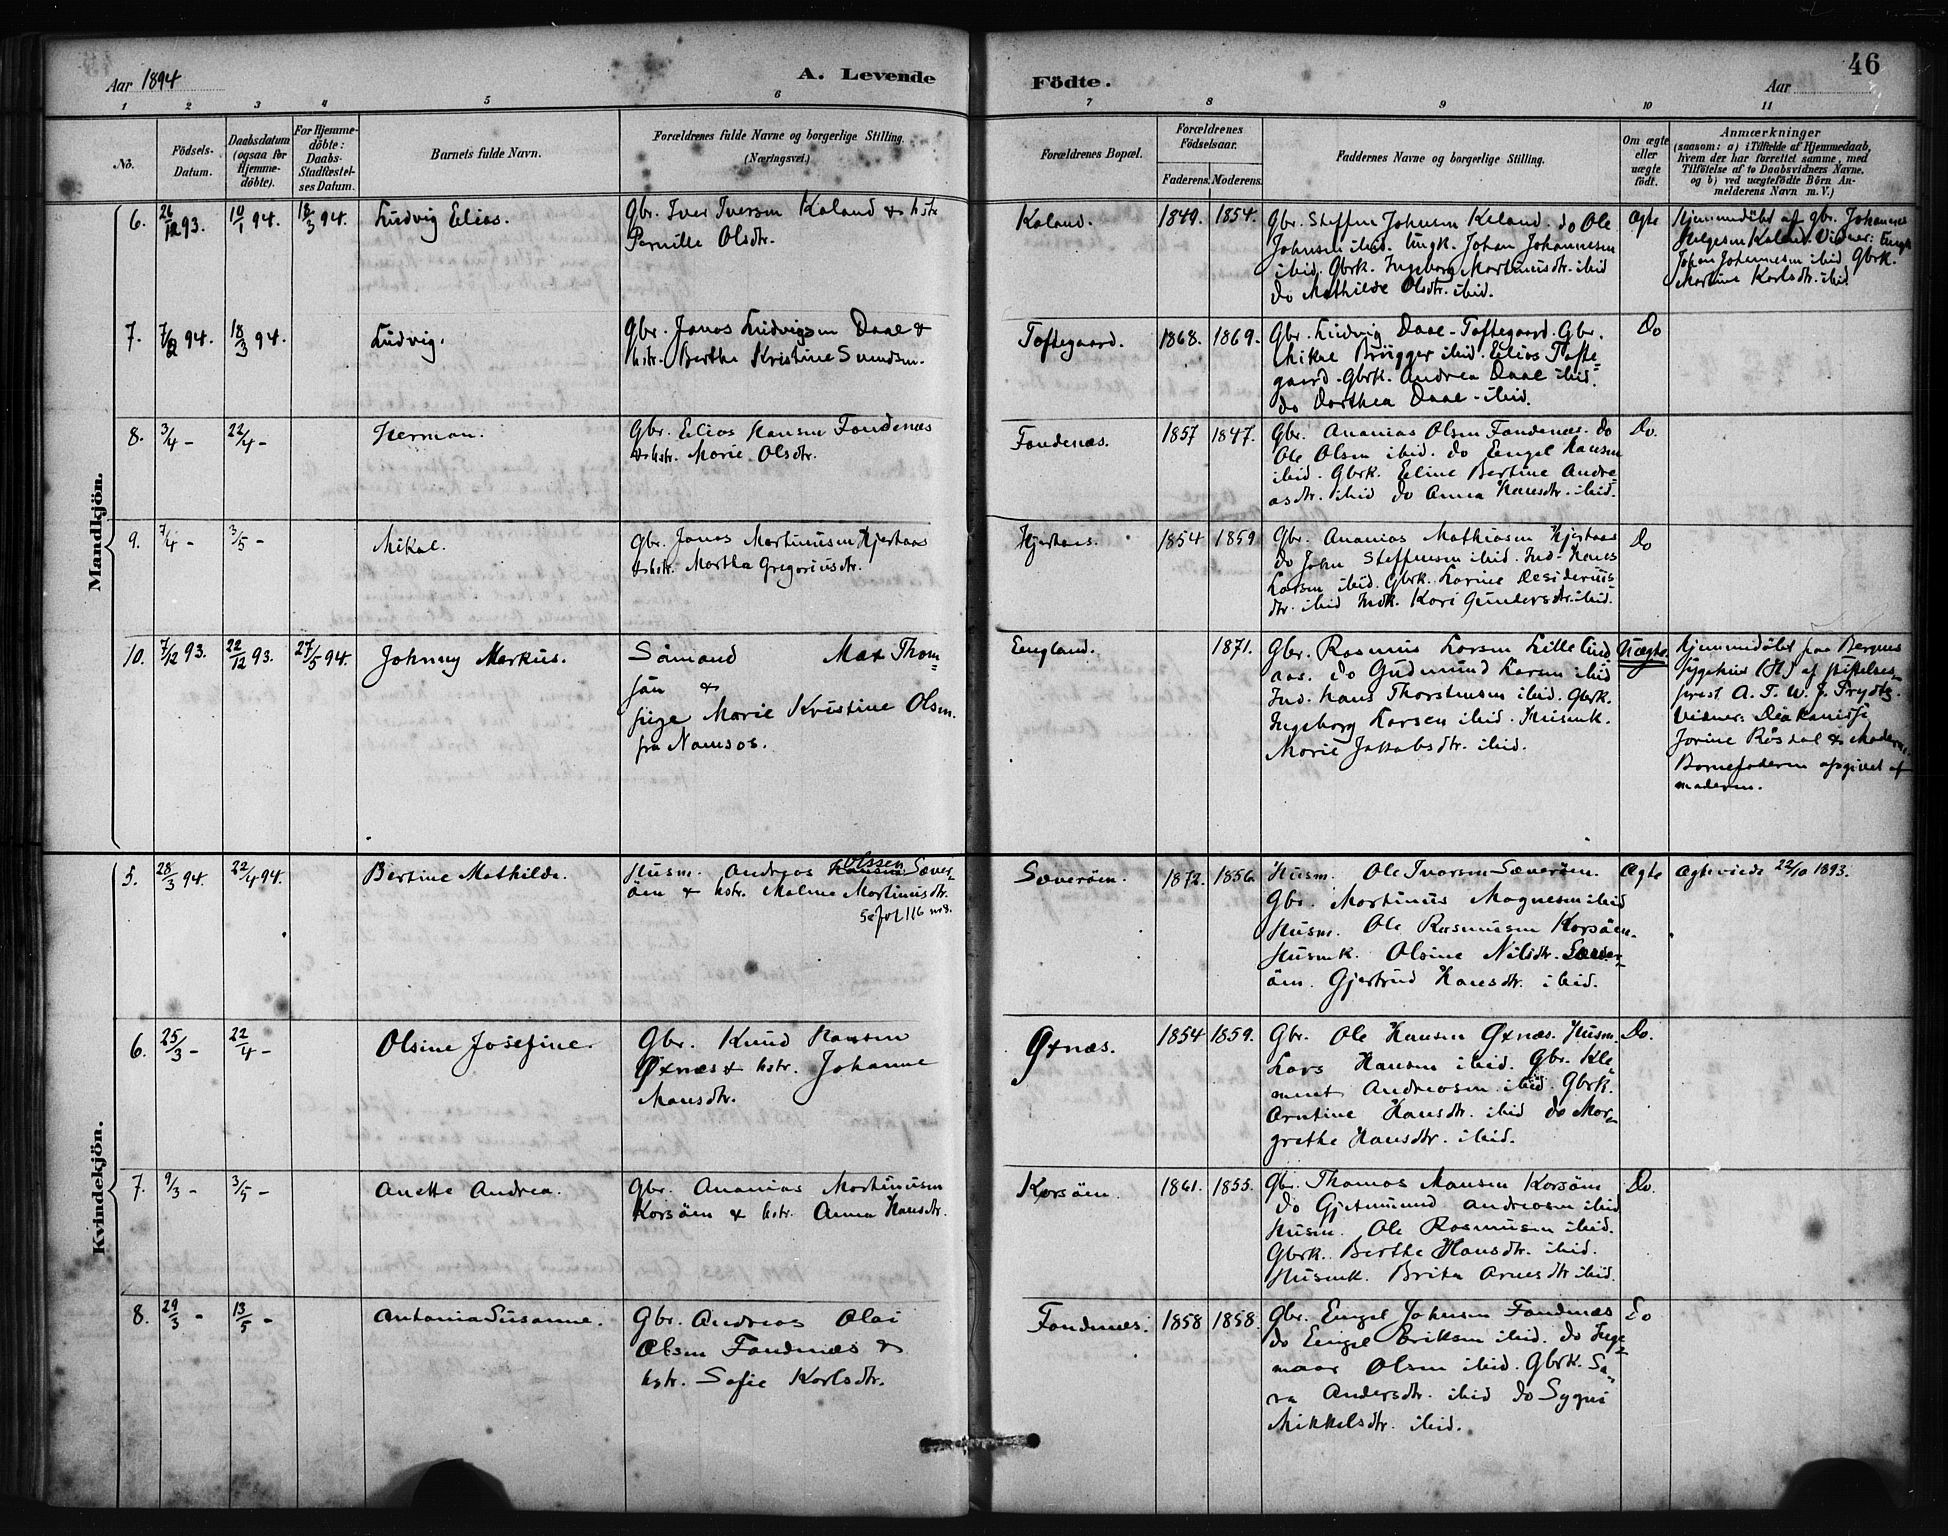 Aar 1894
A. Levende
Födte.
46
Aar
1 2 3 4 5 6 7 8 9 10 11
No.
Födsels-
Datum.
Daabsdatum
(ogsaa for
Hjemme-
döbte).
For Hjemme-
döbte:
Daabs-
Stadfæstel-
ses Datum.
Barnets fulde Navn.
Forældrenes fulde Navne og borgerlige Stilling.
(Næringsvei.)
Forældrenes Bopæl.
Forældrenes
Födselsaar.
Faderens. Moderens.
Faddernes Navne og borgerlige Stilling.
Om ægte
eller
uægte
født.
Anmærkninger
(saasom: a) i Tilfælde af Hjemmedaab,
hvem der har forrettet samme, med
Tilföielse af to Daabsvidners Navne,
og b) ved uægtefödte Börn An-
melderens Navn m. V.)
Mandkjön.
6. 26/12 93. 10/1 94. 18/3 94. Ludvig Elias.
Gbr. Iver Iversen Kaland & hstr.
Pernille Olsdtr.
Kaland. 1849. 1854.
Gbr. Steffen Johnsen Kaland. do Ole
Johnsen ibid. Ungk. Johan Johannesen
ibid. Gbrk. Ingeborg Martinusdtr. ibid
do Mathilde Olsdtr. ibid.
Ægte
Hjemmedöbt af gbr. Johannes
Helgesen Kaland. Vidner: Ungk.
Johan Johannesen ibid Gbrk.
Martine Karlsdtr. ibid
7. 7/2 94. 18/3 94. Ludvig.
Gbr. Jonas Ludvigsen Daae &
hstr. Berthe Kristine Samdsn.
Toftegaard. 1868. 1869.
Gbr. Ludvig Daae-Toftegaard. Gbr.
Mikal Brügger ibid. Elias Tofte-
gaard. Gbrk. Andrea Daae ibid.
do Dorthea Daae - ibid.
Do
8. 3/4 - 22/4 - Herman.
Gbr. Elias Hansen Fondenæs
& hstr. Marie Olsdtr.
Fondenæs. 1857 1847.
Gbr. Ananias Olsen Fondenæs. do
Ole Olsen ibid. do Engel Hansen
ibid. Gbrk. Eline Bertine Andre-
asdtr. ibid do Anna Hansdtr. ibid.
Do.
9. 7/4 - 3/5 - Mikal.
Gbr. Jonas Martinusen Hjertaas
& hstr. Martha Gregoriusdtr.
Hjertaas. 1854 1859
Gbr. Ananias Mathiasen Hjertaas
do John Steffensen ibid. Ind. Hans
Larsen ibid. Gbrk. Karine Desiderius-
dtr. ibid Indk. Kari Gundersdtr. ibid.
Do
10. 7/12 93. 22/12 93. 27/5 94. Johnny Markus.
Sömand Max Thom-
sön &
pige Marie Kristine Olsen.
fra Namsos.
England. 1871.
Gbr. Rasmus Larsen Lille Lind
aas. do Gudmund Larsen ibid
Ind. Hans Thorstensen ibid. Gbrk.
Ingeborg Larsen ibid. Husmk.
Marie Jakobsdtr. ibid.
Uægte.
Hjemmedöbt paa Bergens
sygehus af stiftelses-
prest A. T. W. J. Frydtz.
Vidner: Diakonisse
Jorine Rösdal & Moderen.
Barnefaderen opgivet af
moderen.
Kvindekjön.
5. 28/3 94. 22/4 94. Bertine Mathilde.
Olssen
Husm. Andreas Hansen Sæver-
öen & hstr. Malene Martinusdtr.
Se fol 116 no 8.
Sæveröen. 1872. 1856.
Husm. Ole Ivarsen Sæveröen.
Gbr. Martinus Magnesen ibid
Husm. Ole Rasmusen Korsöen.
Husmk. Olsine Nilsdtr. Sæver-
öen. Gjertrud Hansdtr. ibid.
Ægte
Ægteviede 22/10 1893.
6. 25/3 - 22/4 - Olsine Josefine.
Gbr. Knud Hansen
Øxnæs & hstr. Johanne
Monsdtr.
Øxnæs. 1854 1859.
Gbr. Ole Hansen Øxnæs. Husm.
Lars Hansen ibid. Gbr. Kle-
met Andreasen ibid. Gbrk.
Arntine Hansdtr. ibid do Mar-
grethe Hansdtr. ibid.
Do.
7. 9/3 - 3/5 - Anette Andrea.
Gbr. Ananias Martinusen
Korsöen & hstr. Anna Hansdtr.
Korsöen. 1861. 1855.
Gbr. Thomas Monsen Korsöen
do Gjetmund Andreasen ibid
Husm. Ole Rasmusen ibid.
Gbrk. Berthe Hansdtr. ibid.
Husmk. Brita Arnesdtr ibid.
Do.
8. 29/3 - 13/5 - Antonia Susanne.
Gbr. Andreas Olai
Olsen Fondenæs &
hstr. Sofie Karlsdtr.
Fondenæs. 1858 1858.
Gbr. Engel Johnsen Fondenæs
do Engel Eriksen ibid. do Inge-
maar Olsen ibid. Gbrk. Sa-
ra Andersdtr. ibid do Sygni
Mikkelsdtr. ibid.
Do